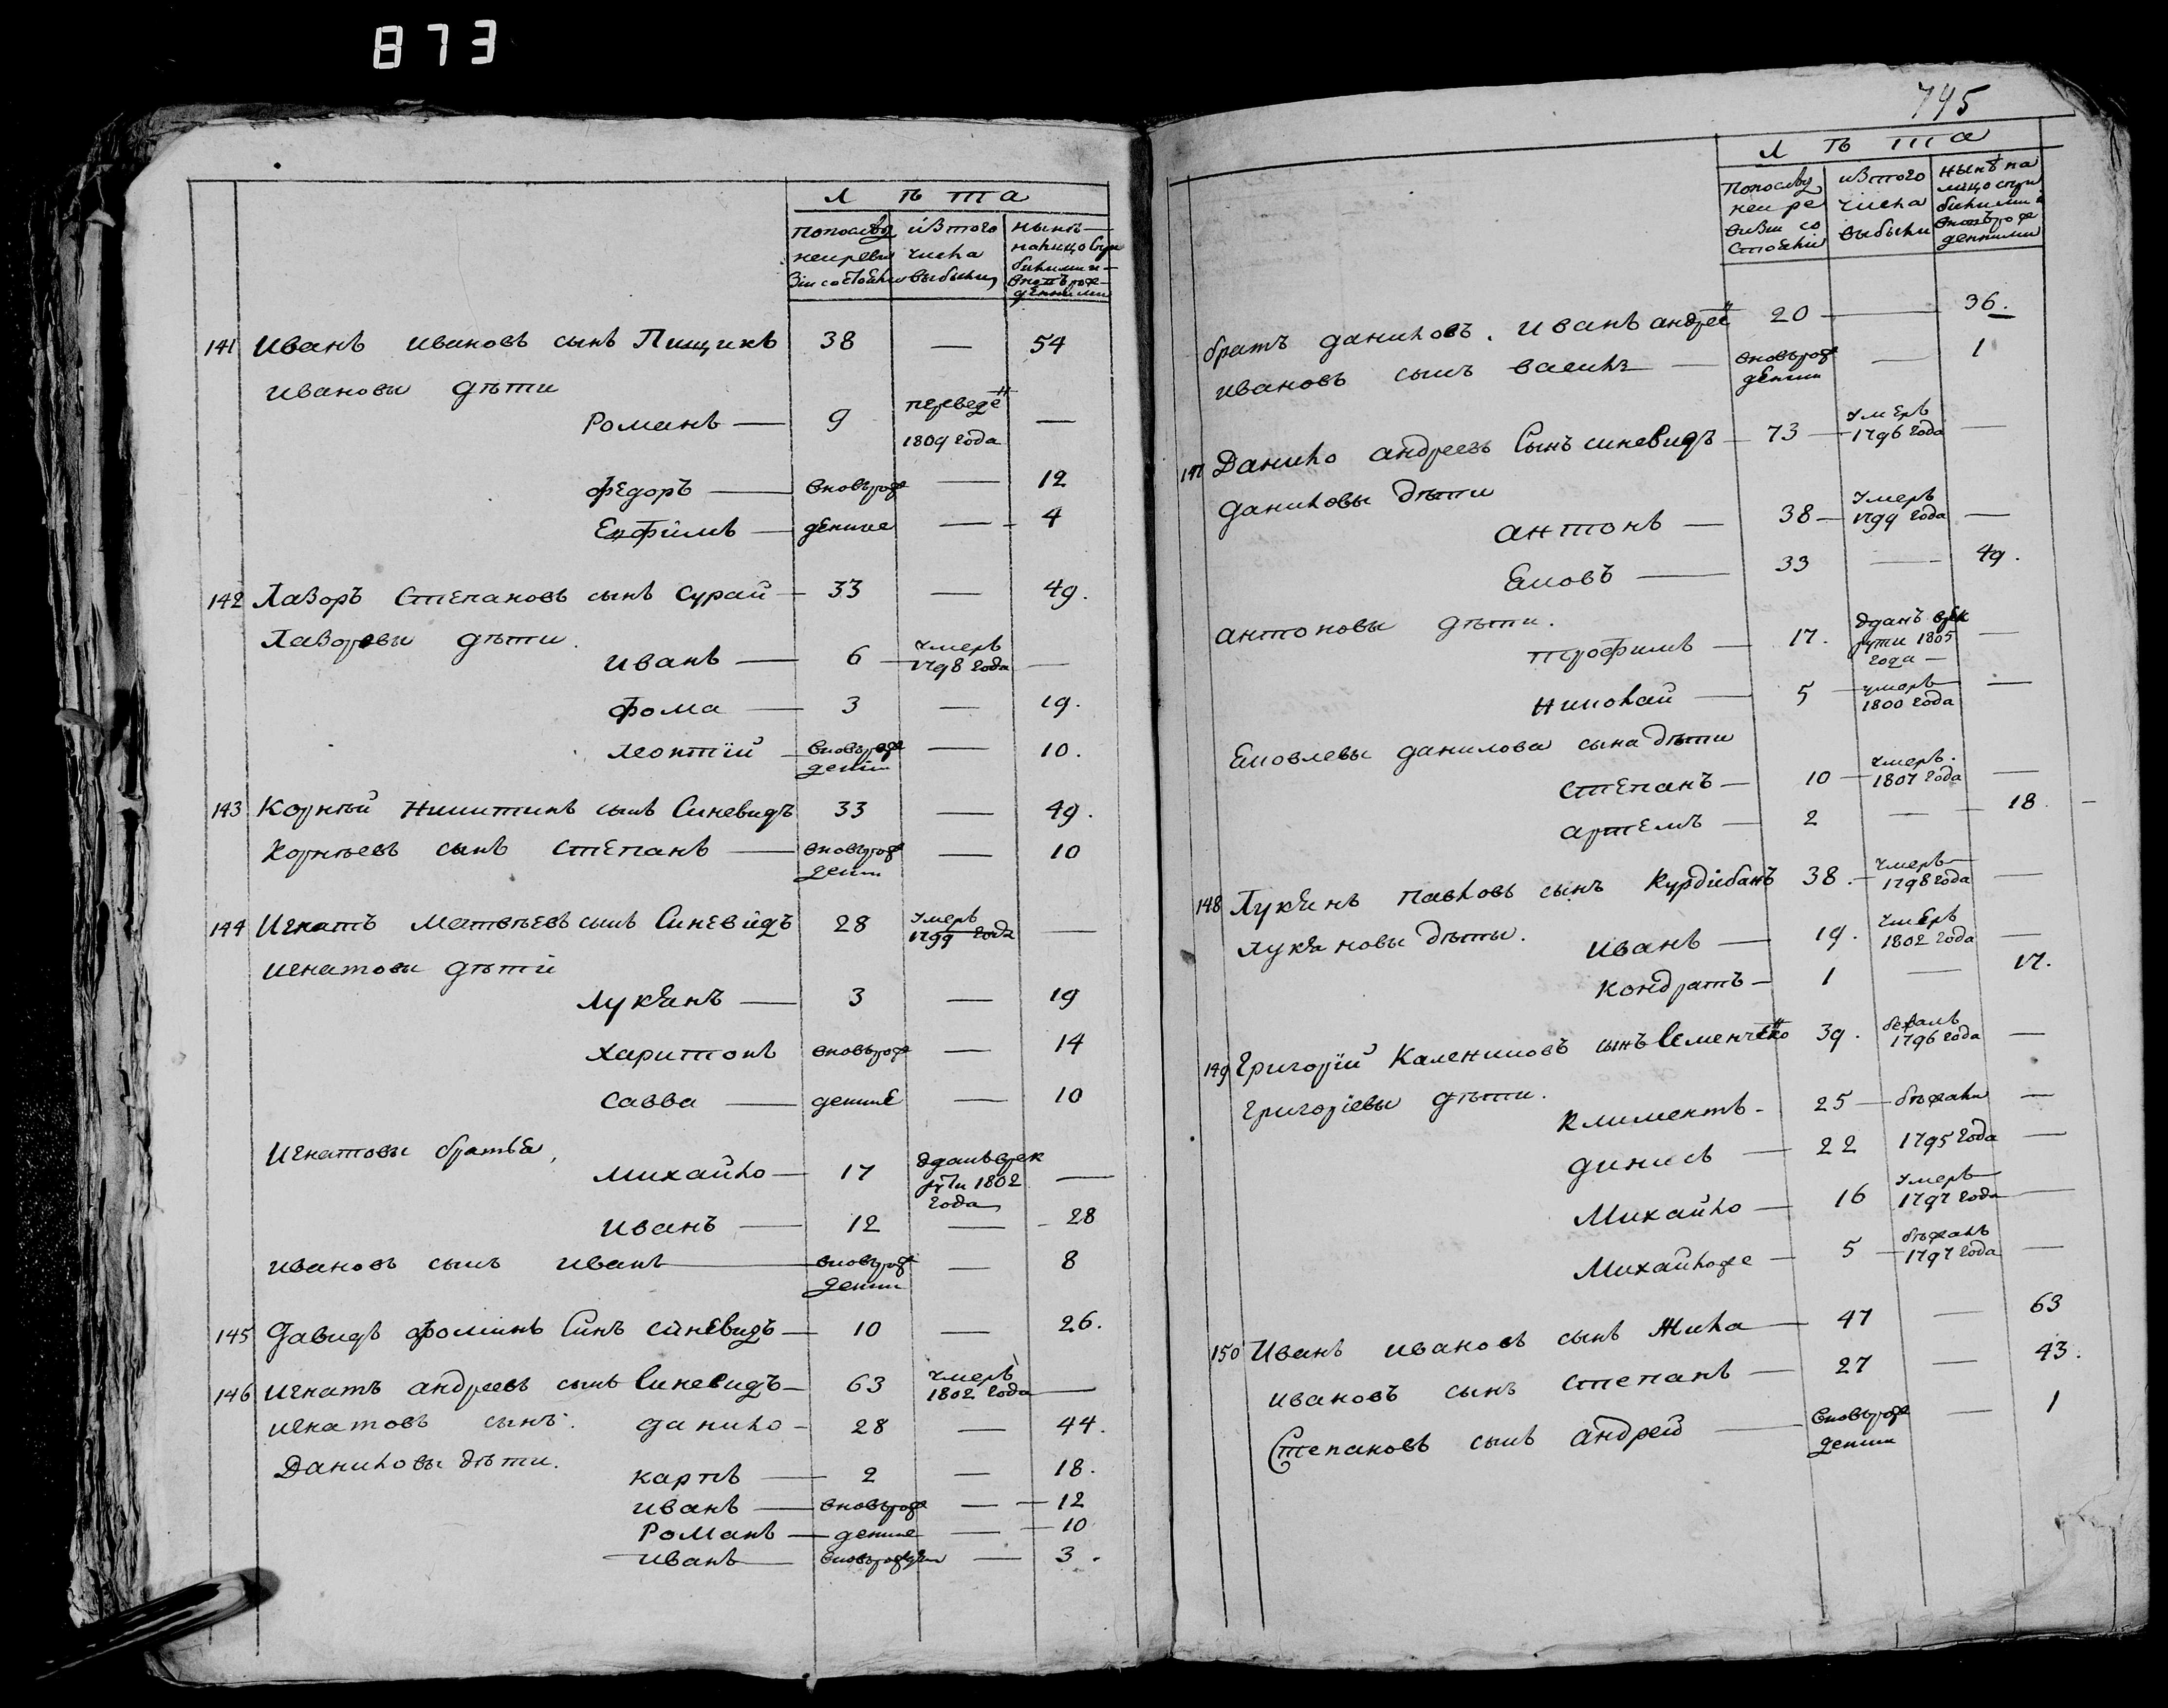 873
Л ѣ т а
попослѣд изтого нынѣ
неиреви числа налицо спри
зіи состояли выбыли былыми и
вновърож
денными
141 Иванъ Ивановъ сынъ Пищикъ 38 — 54
Ивановы дѣти
Романъ — 9 переведен 1809 года —
Федоръ — вновьрож — 12
Евфимъ — денные — 4
142 Лазоръ Степановъ сынъ Сурай — 33 — 49.
Лазоревы дѣти.
Иванъ — 6 — умеръ 1798 года —
Фома — 3 — 19.
Леонтій — вновьрож денъ — 10.
143 Корнѣй Никитинъ сынъ Синевидъ 33 — 49.
Корнѣевъ сынъ Степанъ — вновьрож денъ — 10
144 Игнатъ Матвѣевъ сынъ Синевидъ 28 умеръ 1799 года —
Игнатовы дѣти
Лукянъ — 3 — 19
Харитонъ вновьрож — 14
Савва — денные — 10
Игнатовы братья,
Михайло — 17 отданъ врек руты 1802 года —
Иванъ — 12 — 28
Ивановъ сынъ Иванъ — вновьрож денъ — 8
145 Давидъ Фоминъ Синъ Синевидъ — 10 — 26.
146 Игнатъ Андреевъ сынъ Синевидъ — 63 умеръ 1802 года —
Игнатовъ сынъ. Данило — 28 — 44.
Даниловы дѣти.
Карпъ — 2 — 18.
Иванъ — вновьрож — 12
Романъ — денные — 10
Иванъ — вновьрожден — 3.
745
Л ѣ т а
Попослѣд изтого нынѣ на
неи ре числа лицо спри
визіи со выбыли былыми и
стояли вновърож
денными
братъ Даниловъ. Иванъ андреев 20 — 36.
Ивановъ сынъ Василь — вновьрож денны — 1
147 Данило андреевъ Сынъ синевидъ — 73 — умеръ 1796 года —
Даниловы дѣти
Антонъ — 38 — умеръ 1799 года —
Яковъ — 33 — 49.
Антоновы дѣти.
Трофимъ — 17. отданъ врек руты 1805 года —
Николай — 5 — умеръ 1800 года —
Яковлевы Данилова сына дѣти
Степанъ — 10 — умеръ. 1807 года —
Артемъ — 2 — 18. —
148 Лукянъ Павловъ сынъ Курдибанъ 38. — умеръ 1798 года —
Лукяновы дѣты. Иванъ — 19. умеръ 1802 года —
Кондратъ — 1 — 17.
149 Григорій Калениковъ сынъ Семенченко 39. бежалъ 1796 года —
Григоріевы дѣти.
Климентъ — 25 — бѣжали —
Динисъ — 22 1795 года —
Михайло — 16 умеръ 1797 года —
Михайложе — 5 — бѣжалъ 1797 года —
150 Иванъ Ивановъ сынъ Жила — 47 — 63
Ивановъ сынъ Степанъ — 27 — 43.
Степановъ сынъ Андрей — вновьрож денны — 1